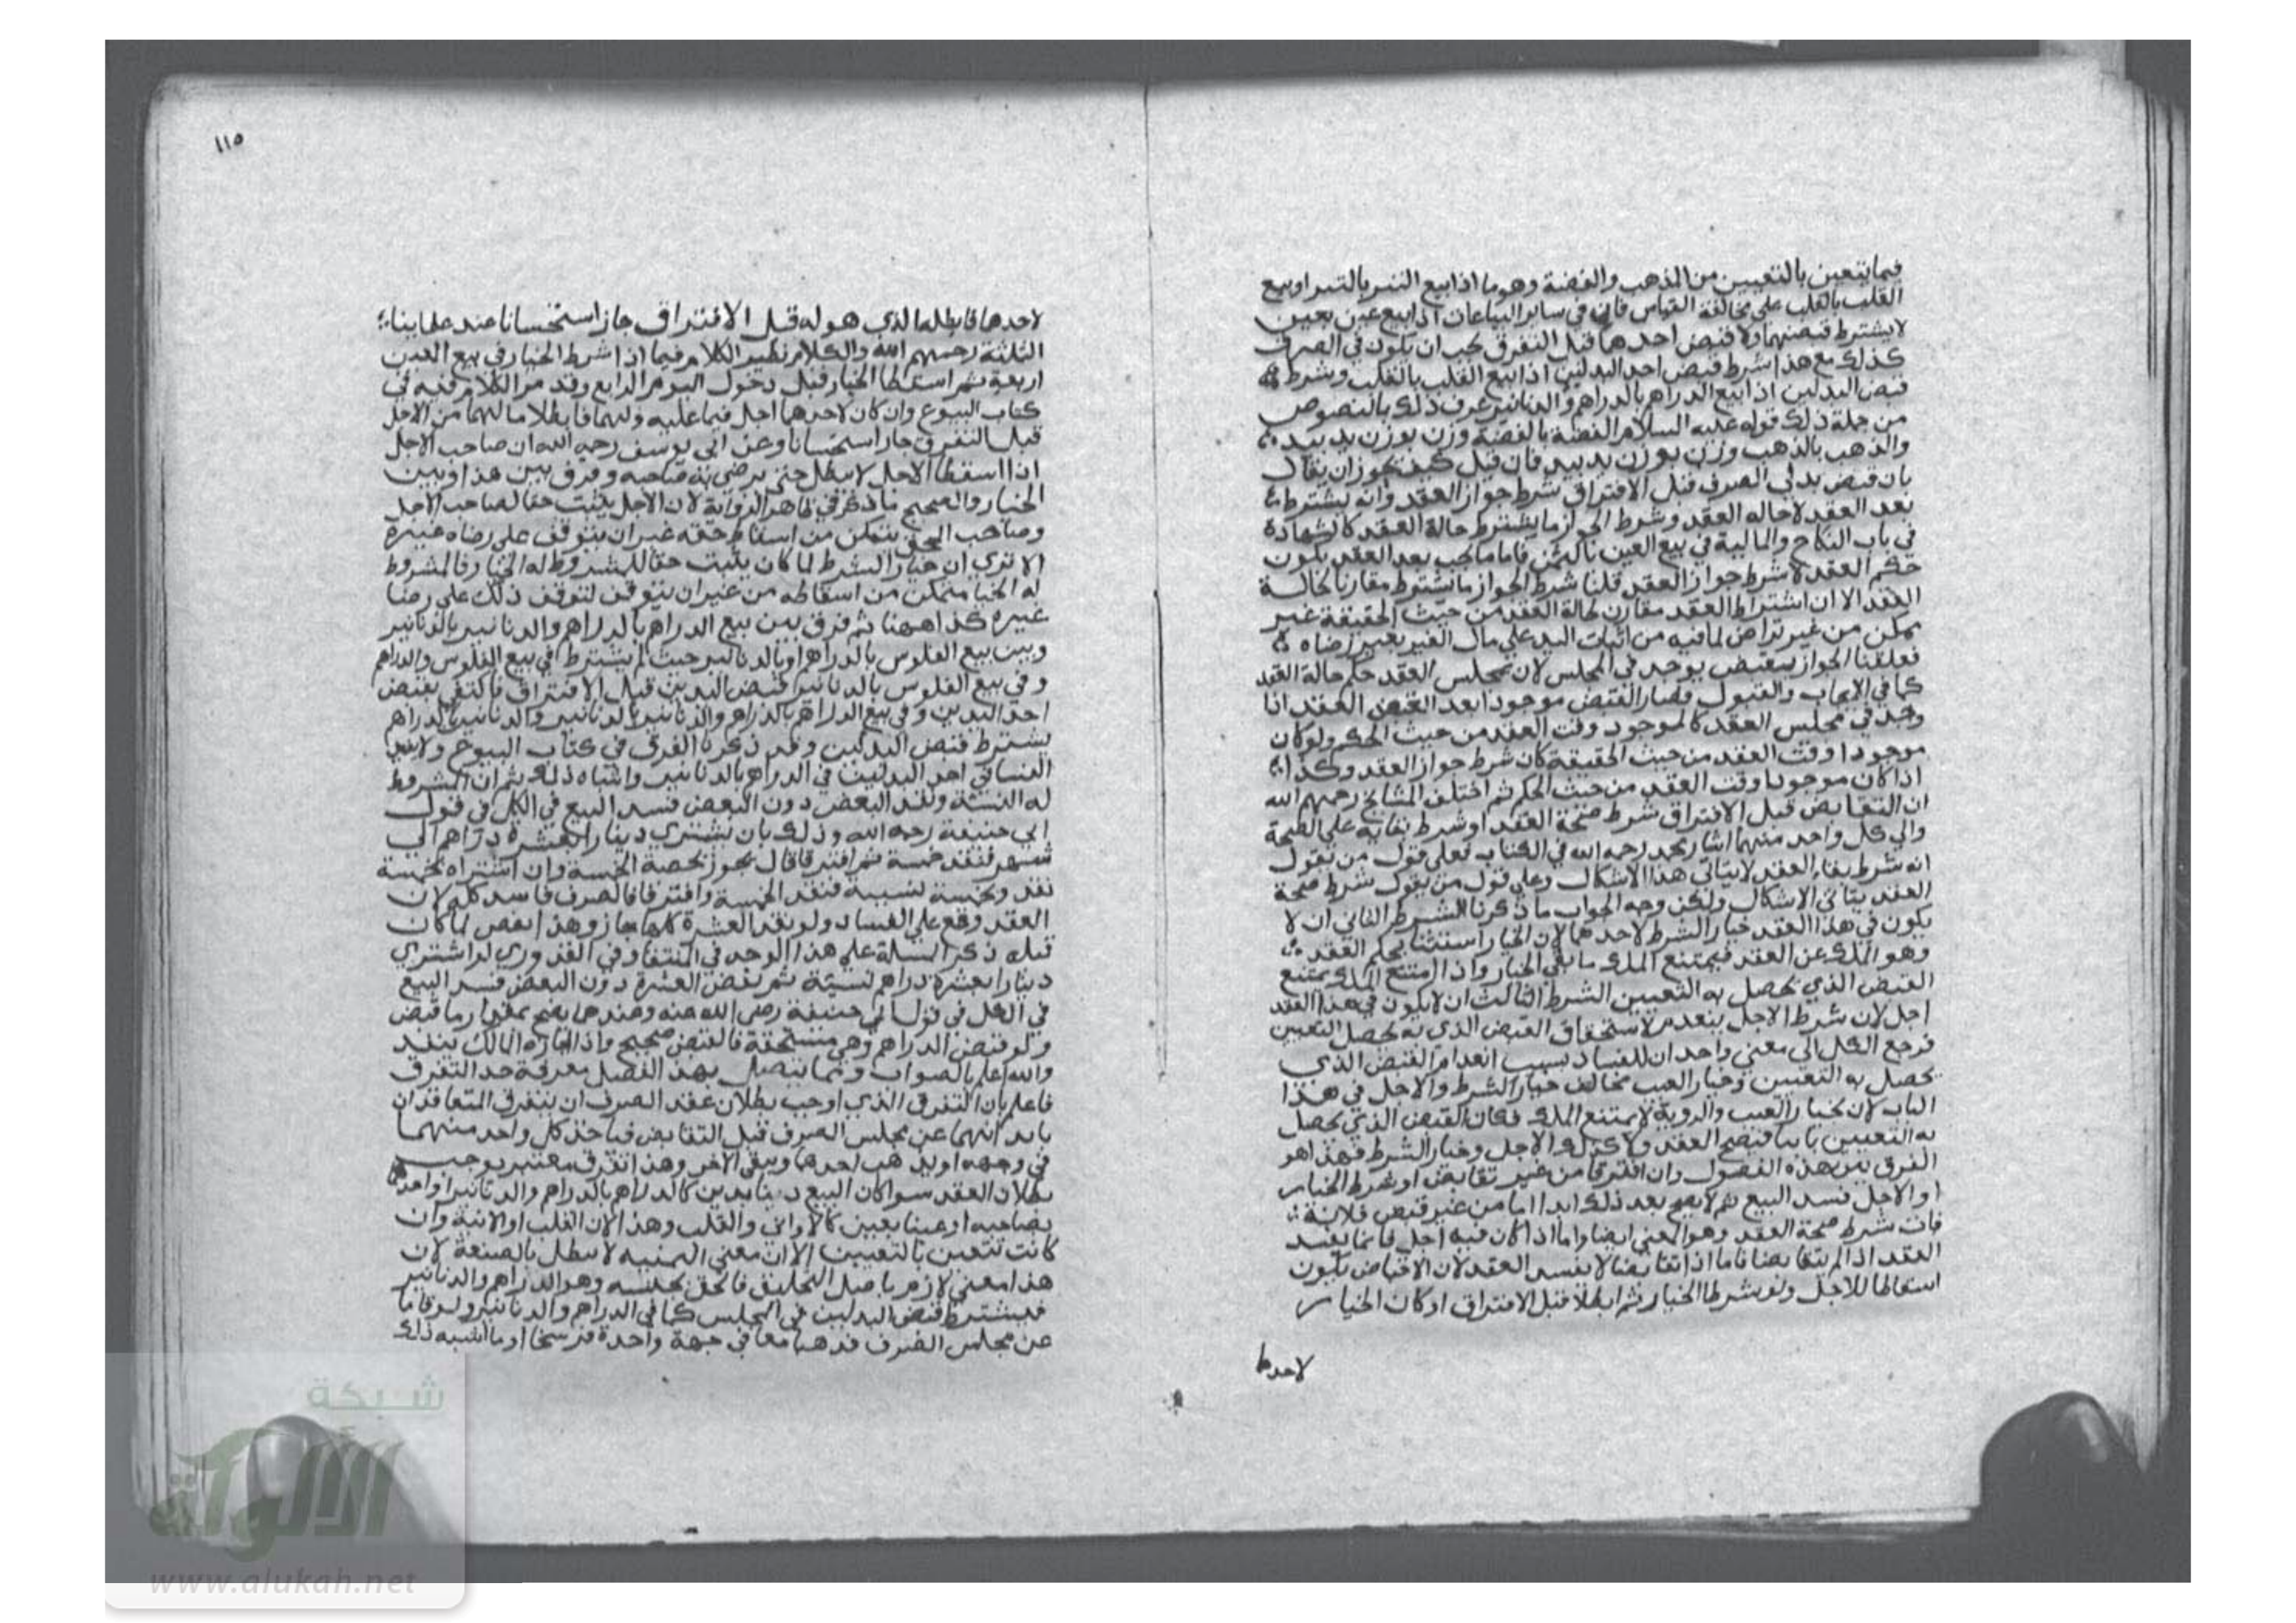 فيما يتعين بالتعيين من الذهب والفضة وهو ما اذا بيع التبر بالتبر او بيع
القلب بالقلب على مخالفة القياس فان في ساير البياعات اذا بيع عين بعين
لا يشترط قبضهما ولا قبض احدهما قبل التفرق يجب ان يكون في الصرف
كذلك مع هذا شرط قبض احد البدلين اذا بيع القلب بالقلب وشرط
قبض البدلين اذا بيع الدراهم بالدراهم والدنانير عرف ذلك بالنصوص
من جملة ذلك قوله عليه السلام الفضة بالفضة وزن بوزن يد بيد
والذهب بالذهب وزن بوزن يد بيد فان قيل كيف يجوز ان يقال
بان قبض بدلى الصرف قبل الافتراق شرط جواز العقد وانه يشترط
بعد العقد لا حاله العقد وشرط الجواز ما يشترط حالة العقد كالشهادة
في باب النكاح والمالية في بيع العين بالثمن فاما ما يجب بعد العقد يكون
حكم العقد لا شرط جواز العقد قلنا شرط الجواز ما يشترط مقارنا لحالة
العقد الا ان اشتراط العقد مقارن لحالة العقد من حيث الحقيقة غير
ممكن من غير تراض لما فيه من اثبات اليد على مال الغير بغير رضاه
فعلقنا الجواز بقبض يوجد في المجلس لان مجلس العقد حكم حالة العقد
كما في الايجاب والقبول فصار القبض موجودا بعد العقد اذا
وجد في مجلس العقد كالموجود وقت العقد من حيث الحكم ولو كان
موجودا وقت العقد من حيث الحقيقة كان شرط جواز العقد وكذا
اذا كان موجودا وقت العقد من حيث الحكم ثم اختلف المشايخ رحمهم الله
ان التقابض قبل الافتراق شرط صحة العقد او شرط بقايه على الصحة
والى كل واحد منهما اشار محمد رحمه الله في الكتاب فعلى قول من يقول
انه شرط بقاء العقد لا يتاتى هذا الاشكال وعلى قول من يقول شرط صحة
العقد يتاتى الاشكال ولكن وجه الجواب ما ذكرنا الشرط الثاني ان لا
يكون في هذا العقد خيار الشرط لاحدهما لان الخيار استثنا لحكم العقد
وهو الملك عن العقد فيمتنع الملك ما بقي الخيار واذا امتنع الملك يمتنع
القبض الذي يحصل به التعيين الشرط الثالث ان لا يكون في هذا العقد
اجل لان شرط الاجل يعدم استحقاق القبض الذي به يحصل التعيين
فرجع الكل الى معنى واحد ان الفساد بسبب انعدام القبض الذي
يحصل به التعيين وخيار العيب مخالف خيار الشرط والاجل في هذا
الباب لان بخيار العيب والروية لا يمتنع الملك فكان القبض الذي يحصل
به التعيين ثابتا فيصح العقد ولا كذلك الاجل وخيار الشرط فهذا هو
الفرق بين هذه الفصول وان افترقا من غير تقابض او شرط الخيار
او الاجل فسد البيع ثم لا يصح بعد ذلك ابدا اما من غير قبض فلانه
فات شرط صحة العقد وهو المعنى ايضا واما اذا كان فيه اجل فانما يفسد
العقد اذا لم يتقابضا فاما اذا تقابضا لا يفسد العقد لان الاقباض يكون
اسقاطا للاجل ولو شرطا الخيار ثم ابطلا قبل الافتراق او كان الخيار
لاحدها
١١٥
لاحدهما فابطلها الذي هو له قبل الافتراق جاز استحسانا عند علماينا
الثلثة رحمهم الله والكلام نظير الكلام فيما اذا شرط الخيار في بيع العين
اربعة ثم اسقطا الخيار قبل دخول اليوم الرابع وقد مر الكلام فيه في
كتاب البيوع وان كان لاحدهما اجل فيما عليه ولهما فابطلا ما لهما من الاجل
قبل التفرق جاز استحسانا وعن ابي يوسف رحمه الله ان صاحب الاجل
اذا اسقط الاجل لا يبطل حتى يرضى به صاحبه وفرق بين هذا وبين
الخيار والصحيح ما ذكر في ظاهر الرواية لان الاجل يثبت حقا لصاحب الاجل
وصاحب الحق يتمكن من اسقاط حقه غير ان يتوقف على رضاه غيره
الا ترى ان خيار الشرط لما كان يثبت حقا للمشروط له الخيار فالمشروط
له الخيا متمكن من اسقاطه من غير ان يتوقف لتوقف ذلك على رضا
غيره كذا ههنا ثم فرق بين بيع الدراهم بالدراهم والدنانير بالدنانير
وبين بيع الفلوس بالدراهم او بالدنانير حيث لم يشترط في بيع الفلوس والدراهم
وفي بيع الفلوس بالدنانير قبض البدلين قبل الافتراق فاكتفي بقبض
احد البدلين وفي بيع الدراهم بالدراهم والدنانير بالدنانير والدنانير بالدراهم
يشترط قبض البدلين وقد ذكرنا الفرق في كتاب البيوع
النسا في احد البدلين في الدراهم بالدنانير واشباه ذلك ثم ان المشروط
له النسئة ونقد البعض دون البعض فسد البيع في الكل في قول
ابي حنيفة رحمه الله وذلك بان يشتري دينارا بعشرة دراهم الى
شهر فنقد خمسة ثم افترقا قال يجوز بحصة الخمسة وان اشتراه بخمسة
نقد وبخمسة نسيه فنقد الخمسة وافترقا فالصرف فاسد كله لان
العقد وقع على الفساد ولو نقد العشرة كلها جاز وهذا نقص لما كان
قبله ذكر المسلة على هذا الوجه في المنتقا وفي القدوري لو اشترى
دينارا بعشرة دراهم نسيئة ثم نقض العشرة دون البعض فسد البيع
في الكل في قول ابي حنيفة رضي الله عنه وعندهما يصح بمقدار ما قبض
ولو قبض الدراهم وهي مستحقة فالقبض صحيح واذا اجازه المالك ينفذ
والله اعلم بالصواب ومما يتصل بهذا الفصل معرفة حد التفرق
فاعلم بان التفرق الذي اوجب بطلان عقد الصرف ان يتفرق المتعاقدان
بابدانهما عن مجلس الصرف قبل التقابض فياخذ كل واحد منهما
في وجهه او يذهب احدهما ويبقى الاخر وهذا تفرق معتبر يوجب
بطلان العقد سوا كان البيع دينا بدين كالدراهم بالدراهم والدنانير او احدهما
بصاحبه او عينا بعين كالاواني والقلب وهذا لان القلب او الانية وان
كانت تتعين بالتعيين الا ان معنى الثمنيه لا تبطل بالصنعة لان
هذا معنى لازم باصل التخليق فالحق بجنسه وهو الدراهم والدنانير
فيشترط قبض البدلين في المجلس كما في الدراهم والدنانير ولو قاما
عن مجلس الصرف فذهبا معا في جهة واحدة فرسخا او ما اشبه ذلك
شبكة
الألوكة
www.alukah.net